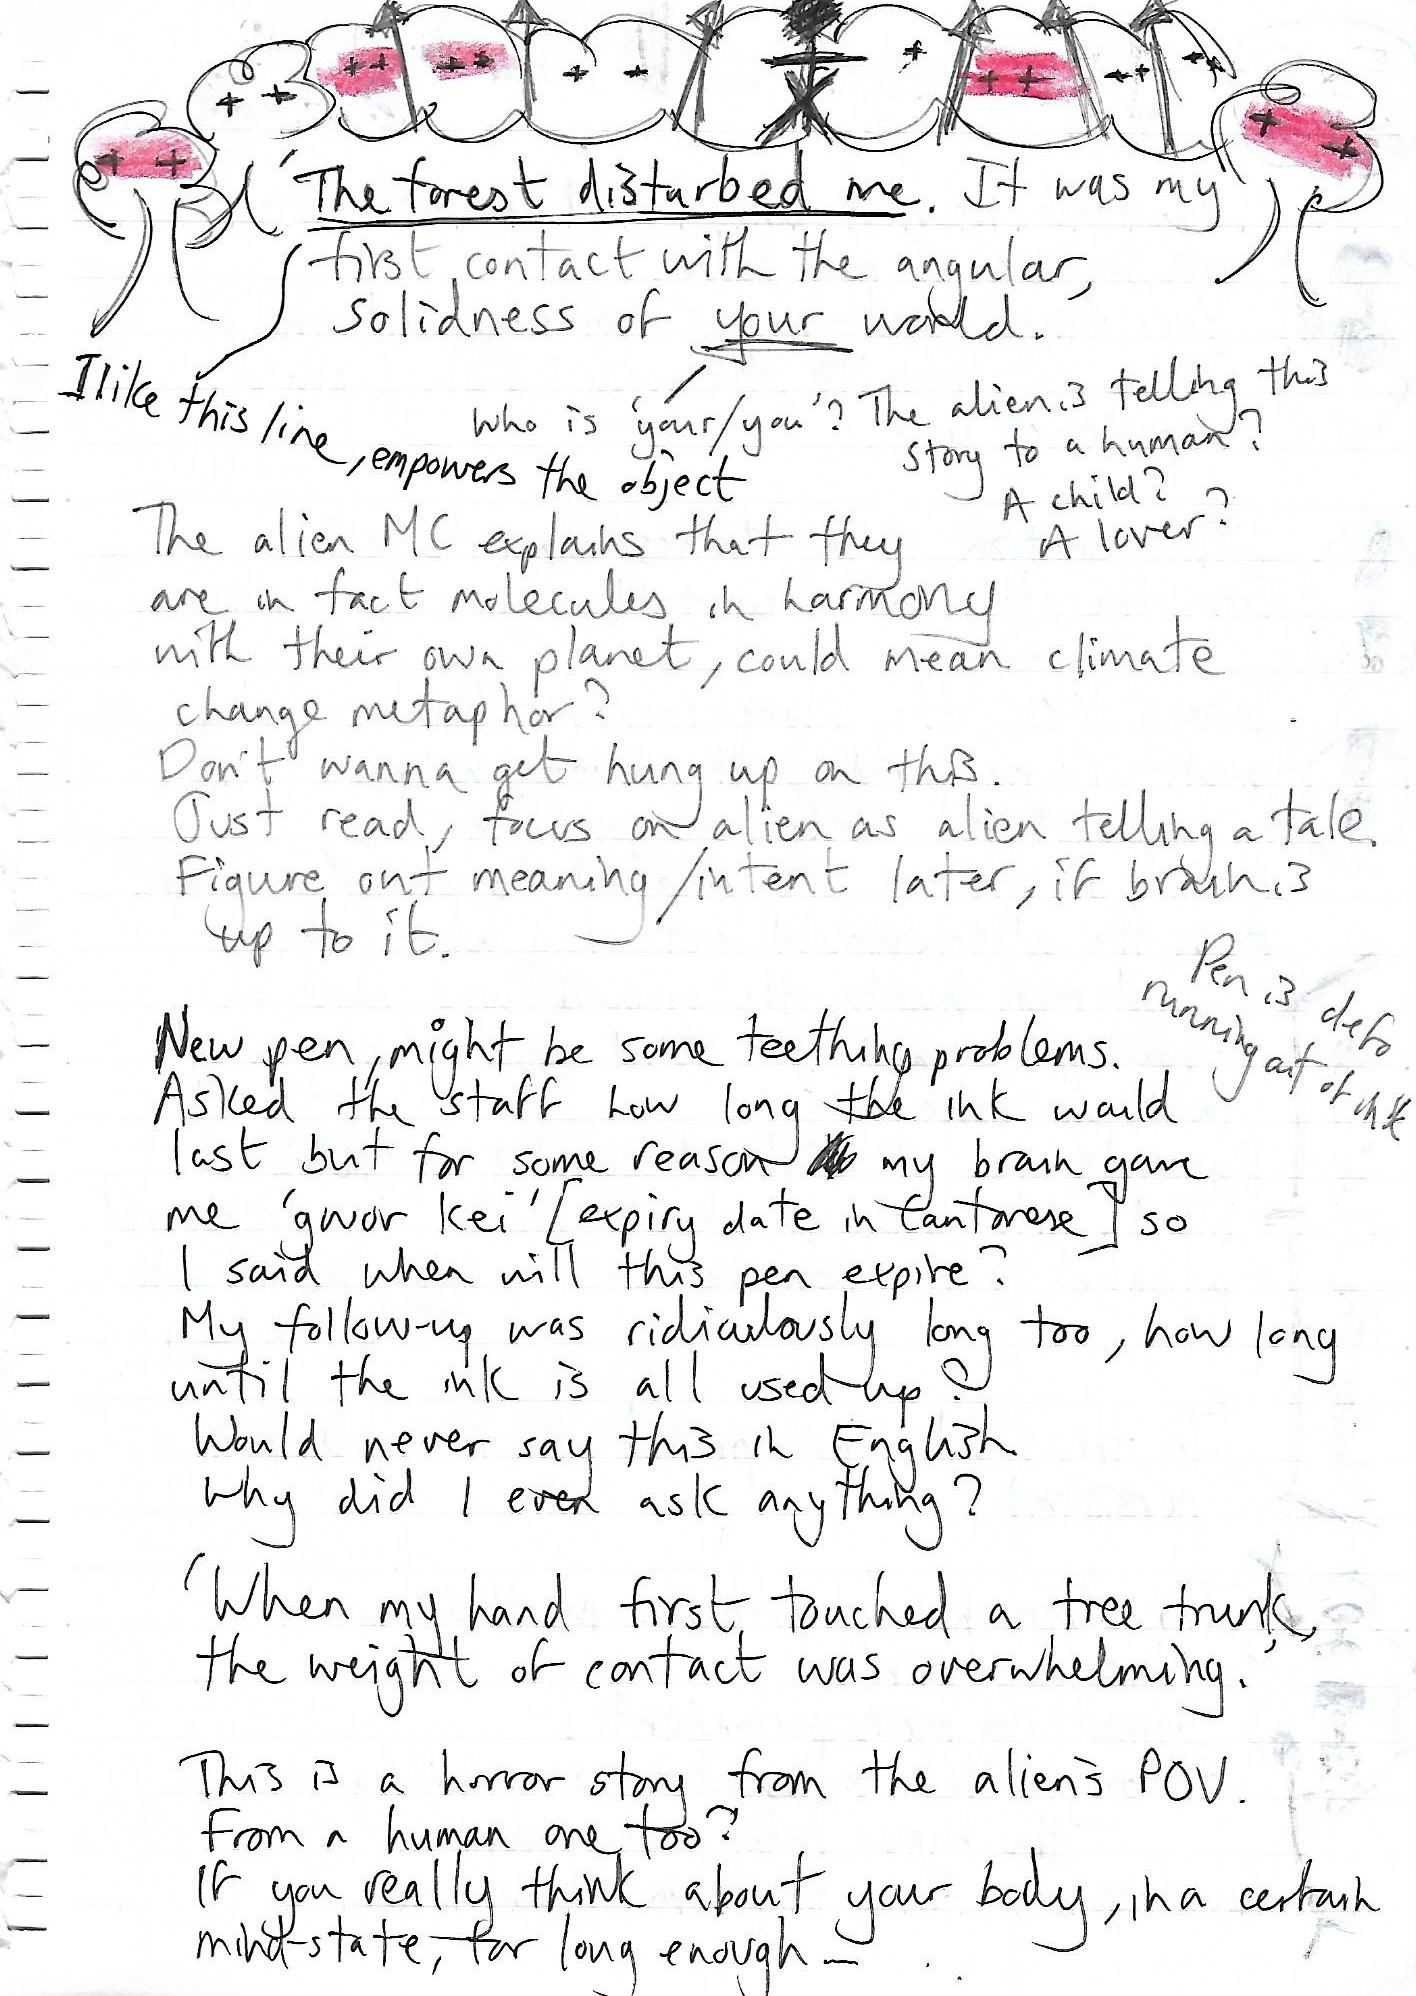 'The forest disturbed me. It was my
first contact with the angular,
solidness of your world.
I like this line, empowers the object
Who is 'your/you'? The alien is telling this
story to a human?
A child?
A lover?
The alien MC explains that they
are in fact molecules in harmony
with their own planet, could mean climate
change metaphor?
Don't wanna get hung up on this.
Just read, focus on alien as alien telling a tale.
Figure out meaning/intent later, if brain is
up to it.
Pen is defo
running out of ink
New pen, might be some teething problems.
Asked the staff how long the ink would
last but for some reason my brain gave
me 'gwor kei' [expiry date in Cantonese] so
I said when will this pen expire?
My follow-up was ridiculously long too, how long
until the ink is all used up?
Would never say this in English
Why did I even ask anything?
'When my hand first touched a tree trunk,
the weight of contact was overwhelming.'
This is a horror story from the alien's POV.
From a human one too?
If you really think about your body, in a certain
mind-state, for long enough –